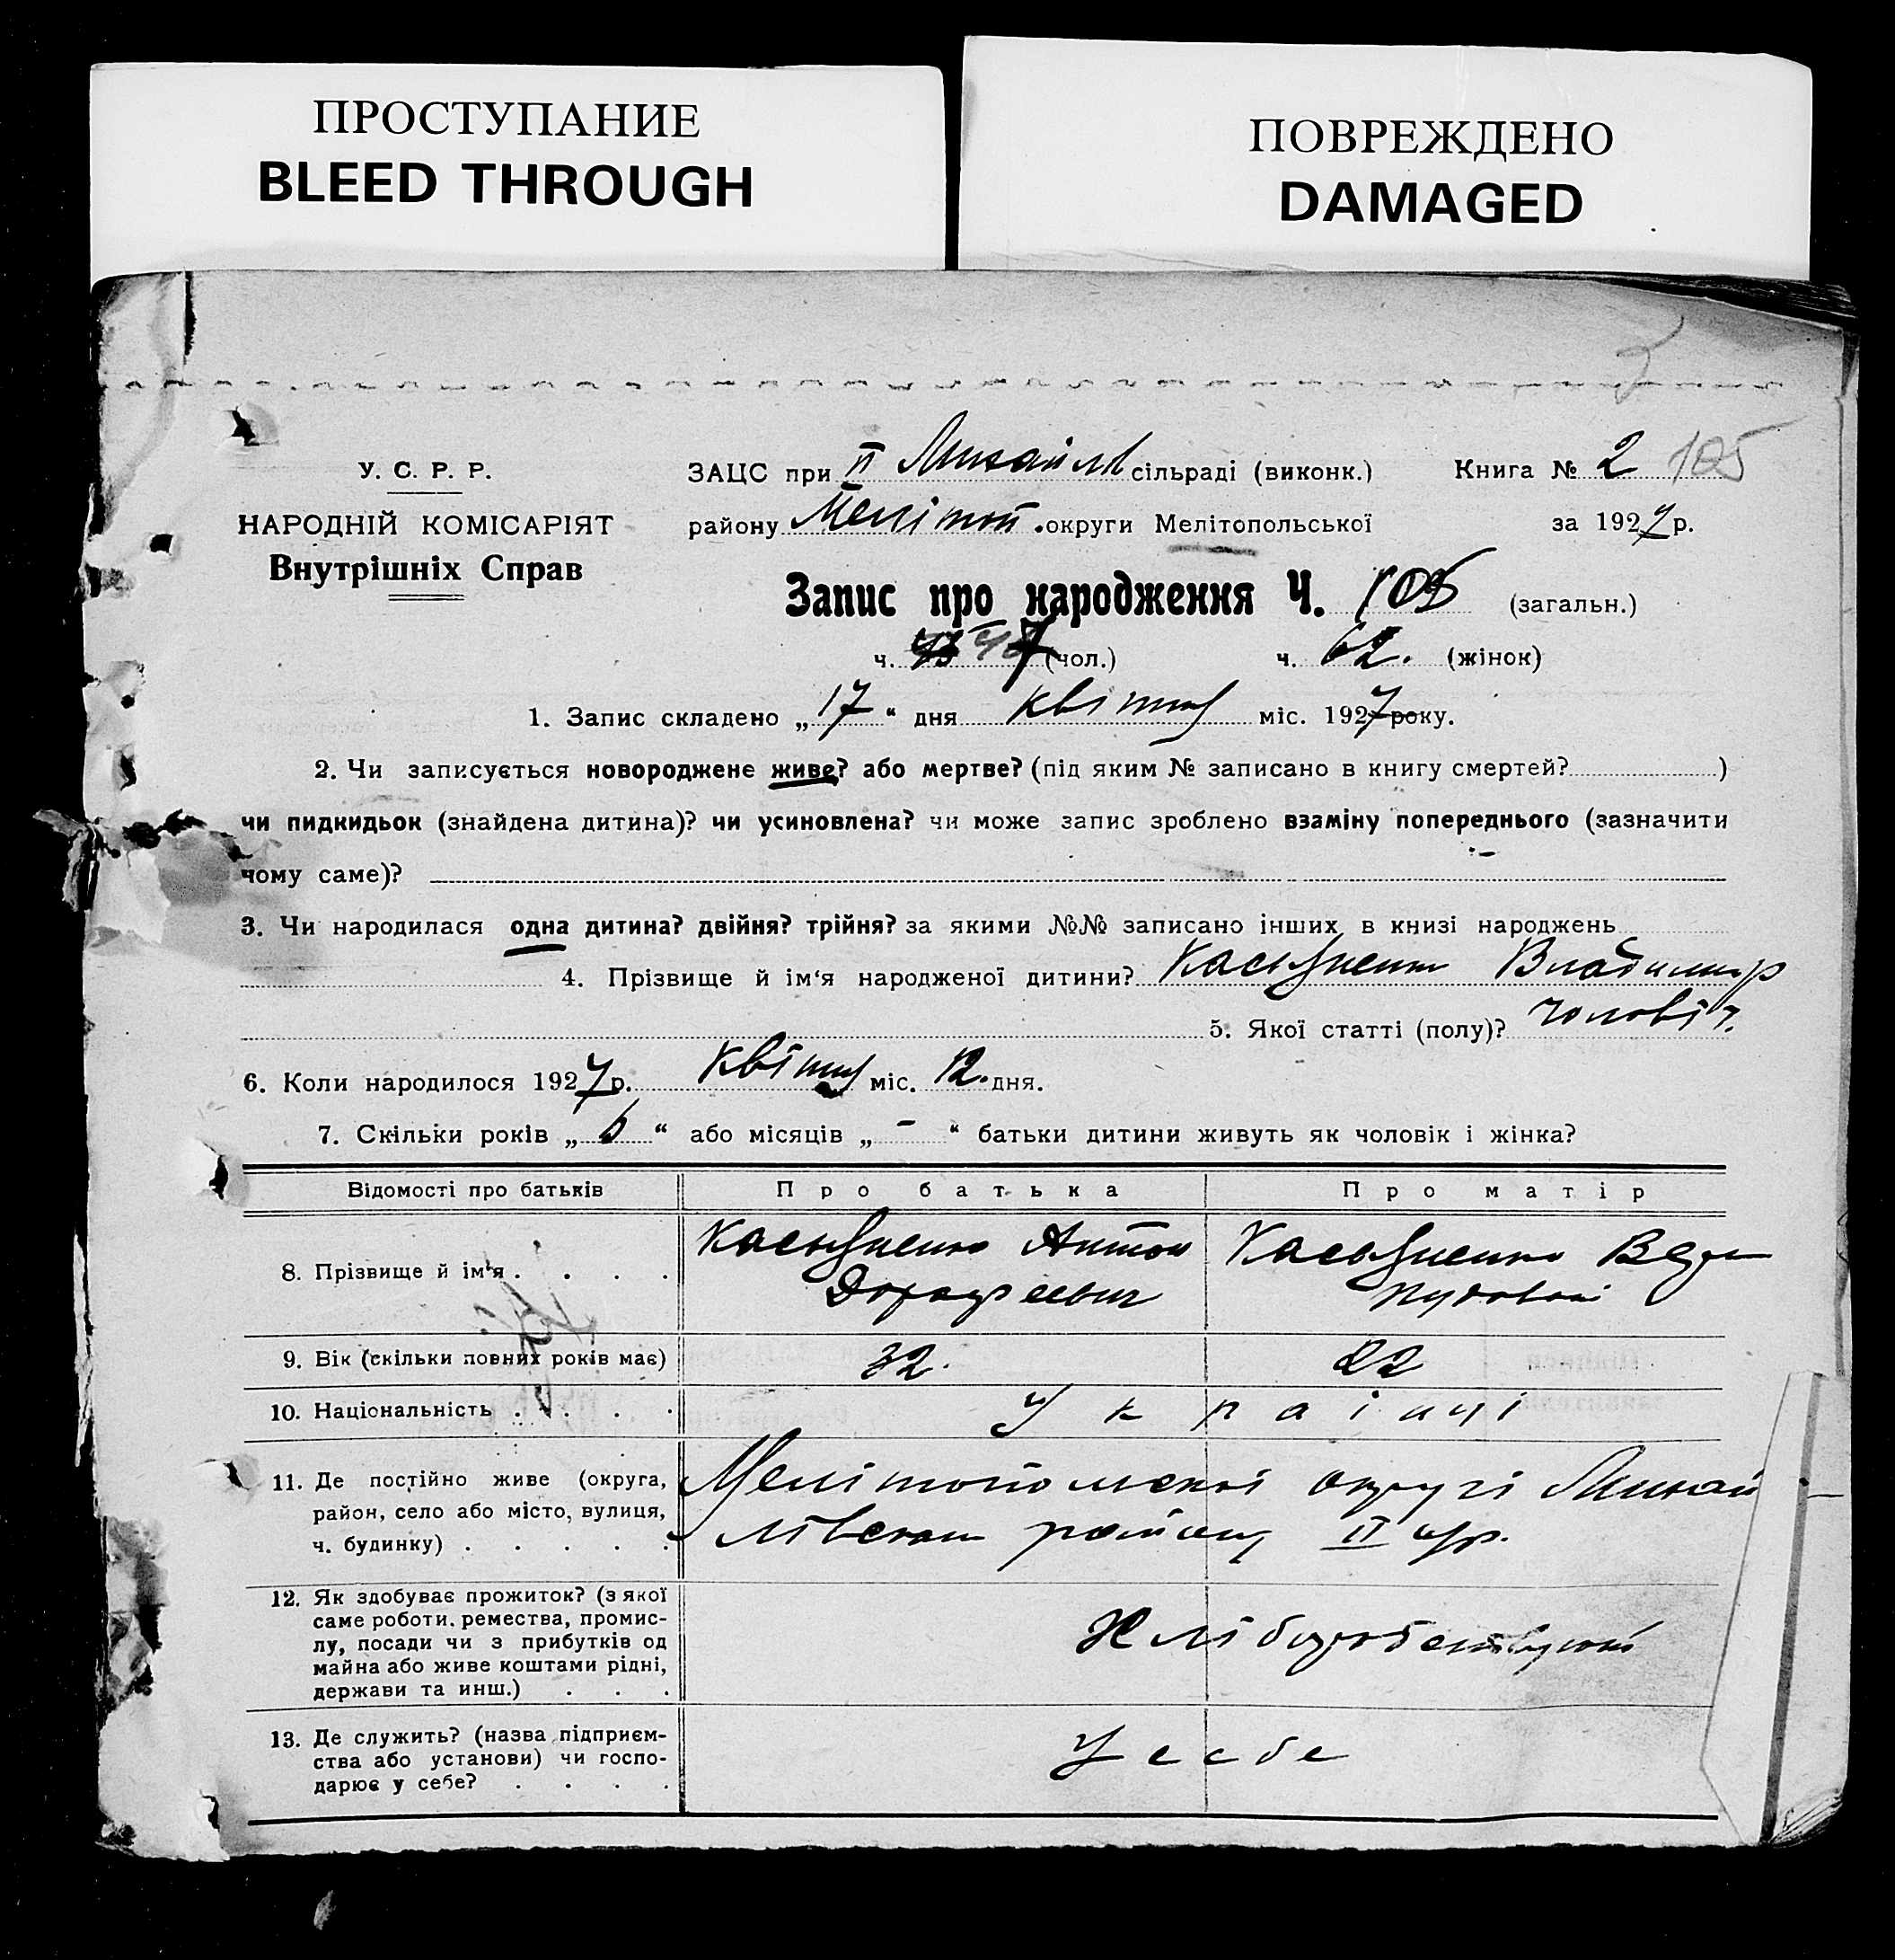 ПРОСТУПАНИЕ
BLEED THROUGH
ПОВРЕЖДЕНО
DAMAGED
У. С. Р. Р.
НАРОДНІЙ КОМІСАРІЯТ
Внутрішніх Справ
ЗАЦС при ІІ Михайлів сільраді (виконк.)
району Меліто́п. округи Мелітопольської
Книга № 2 105
за 1927 р.
Запис про народження Ч. 105 (загальн.)
ч. 47 (чол.) ч. 62. (жінок)
1. Запис складено „17“ дня квітня міс. 1927 року.
2. Чи записується новороджене живе? або мертве? (під яким № записано в книгу смертей? )
чи пидкидьок (знайдена дитина)? чи усиновлена? чи може запис зроблено взаміну попереднього (зазначити
чому саме)?
3. Чи народилася одна дитина? двійня? трійня? за якими №№ записано інших в книзі народжень
4. Прізвище й ім‘я народженої дитини? Владимир
5. Якої статті (полу)? чоловіч.
6. Коли народилося 1927 р. квітня міс. 12. дня.
7. Скільки років „6“ або місяців „-“ батьки дитини живуть як чоловік і жінка?
Відомості про батьків Про батька Про матір
8. Прізвище й ім‘я . . . . Антон
Дорофеевич
9. Вік (скільки повних років має) 32. 22
10. Національність . . . . Українці
11. Де постійно живе (округа, район, село або місто, вулиця, ч. будинку) . . . . .
Мелітопольської округі Михай-
лівськ району ІІ
12. Як здобуває прожиток? (з якої
саме роботи. ремества, промис-
лу, посади чи з прибутків од
майна або живе коштами рідні,
держави та инш.) . . .
Хліборобствуют
13. Де служить? (назва підприєм-
ства або установи) чи госпо-
дарює у себе? . . . .
У себе